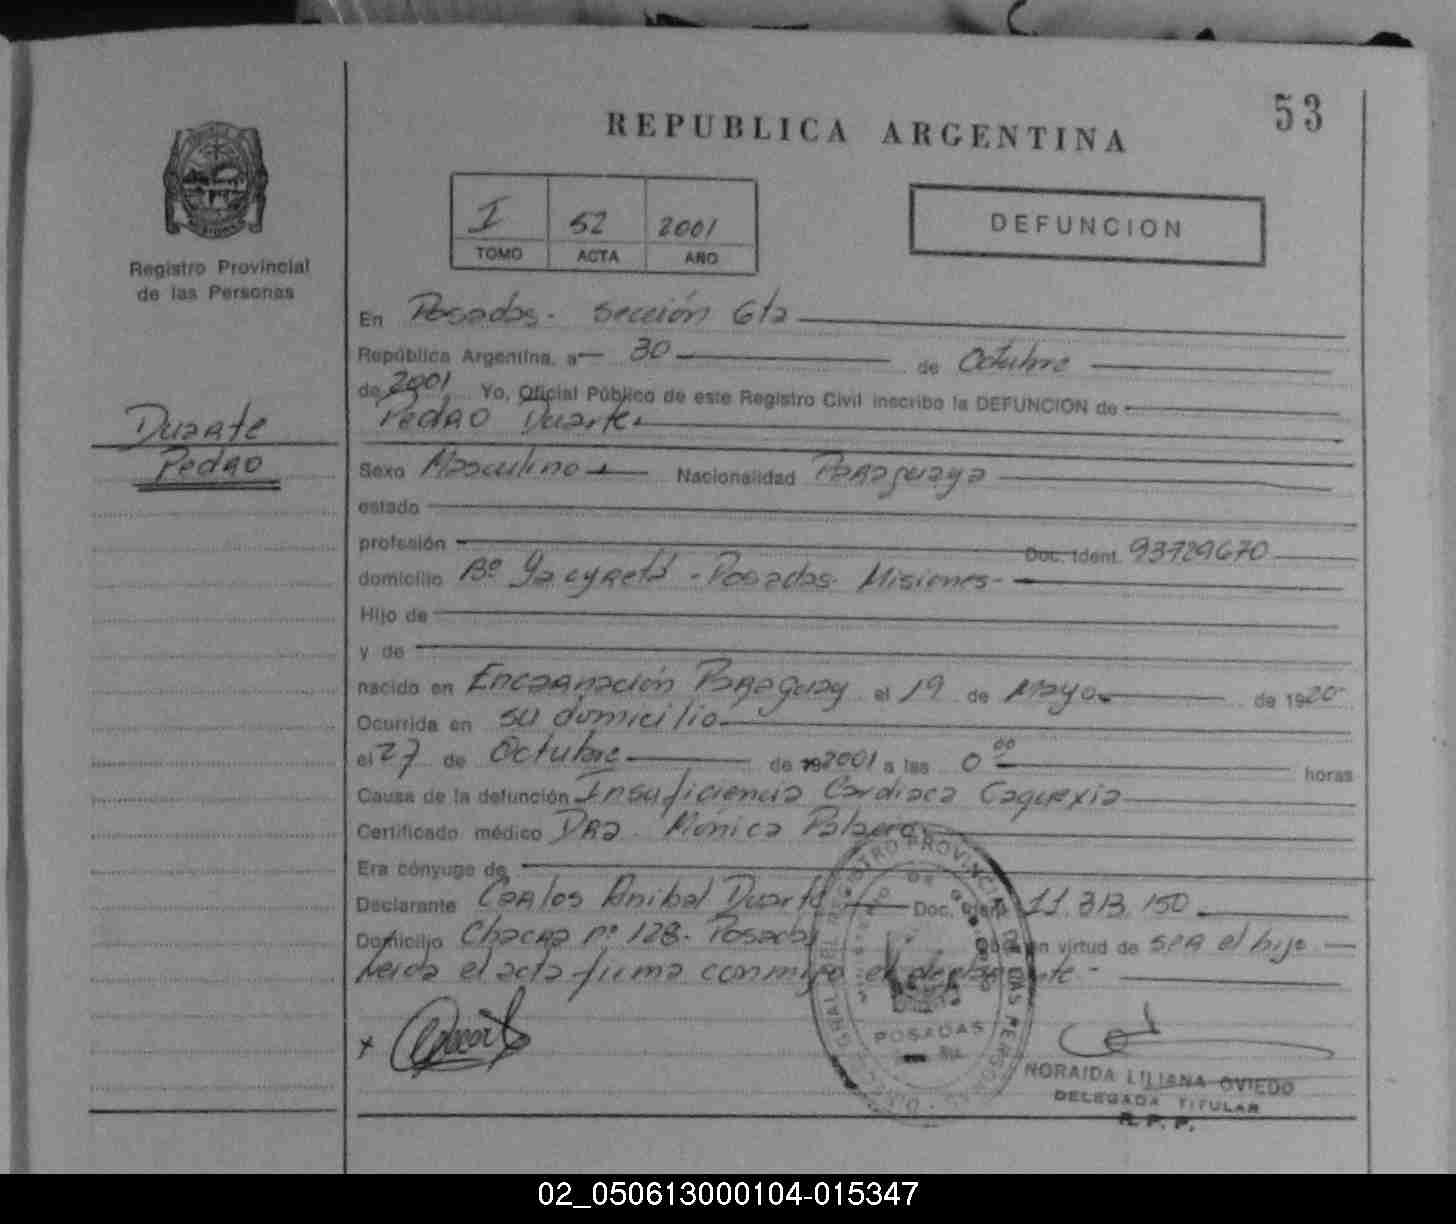 53
REPUBLICA ARGENTINA
I 52 2001
TOMO ACTA AÑO
DEFUNCION
Registro Provincial
de las Personas
Duarte
Pedro
En Posadas - Sección 6ta
República Argentina, a 30 de Octubre
de 2001 Yo, Oficial Público de este Registro Civil inscribo la DEFUNCION de
Pedro Duarte
Sexo Masculino Nacionalidad Paraguaya
estado
profesión Doc. Ident. 93729670
domicilio Bº Yacyretá - Posadas - Misiones -
Hijo de
y de
nacido en Encarnación Paraguay el 19 de Mayo de 1920
Ocurrida en su domicilio
el 27 de Octubre de 192001 a las 0 00 horas
Causa de la defunción Insuficiencia Cardiaca Caquexia
Certificado médico Dra. Mónica
Era cónyuge de
Declarante Carlos Anibal Duarte Doc. Ident. 11.313.150
Domicilio Chacra nº 128 - Posadas Obra en virtud de ser el hijo
Leida el acta firma conmigo el declarante -
POSADAS
NORAIDA LILIANA OVIEDO
DELEGADA TITULAR
R. P. P.
02_050613000104-015347